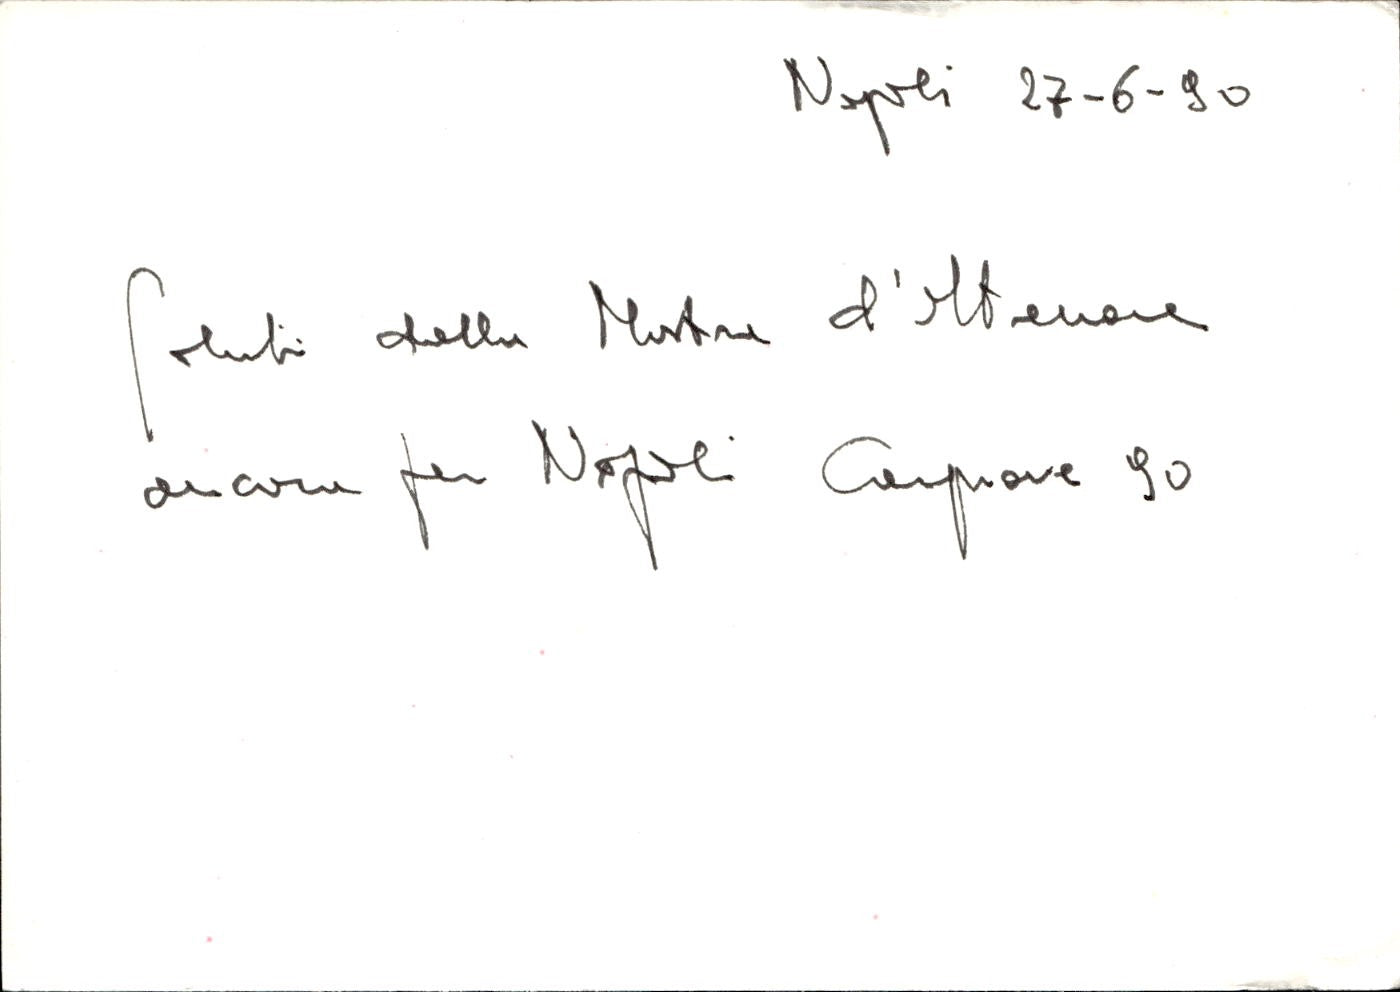 Napoli 27-6-90
Saluti dalla Mostra d'Oltremare
ancora per Napoli 90